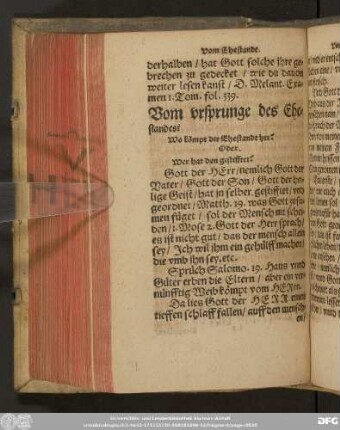 Vom Ehestande.
derhalben / hat Gott solche ihre ge-
brechen zu gedecket / wie du dauon
weiter lesen kanst / D. Melant. Exa-
men 1. Tom. fol. 539.
Vom vrsprunge des Ehe-
standes/
Wo kömpt der Ehestande her?
Oder.
Wer hat den gestifftet?
Gott der HErr / nemlich Gott der
Vater / Gott der Son / Gott der hei-
lige Geist / hat jn selbst gestifftet / vnd
geordnet / Matth. 19. was Gott zusa-
men füget / sol der Mensch nit schei-
den / 1. Mose 2. Gott der Herr sprach /
es ist nicht gut / das der mensch allein
sey / Ich wil jhm ein gehülff machen /
die vmb ihn sey. etc.
Sprüch Salomo. 19. Haus vnd
Güter erben die Eltern / aber ein ver-
nünfftig Weib kömpt vom HErrn.
Da lies Gott der HERR einen
tieffen schlaff fallen / auff den mensch
en /